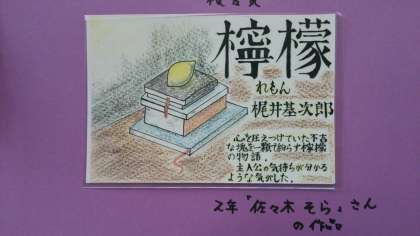 檸檬
れもん
梶井基次郎
心を圧えつけていた不吉
な塊を一顆で紛らす檸檬
の物語。
主人公の気持ちが分かる
ような気がした。
2年「佐々木 そら」さん
の作品